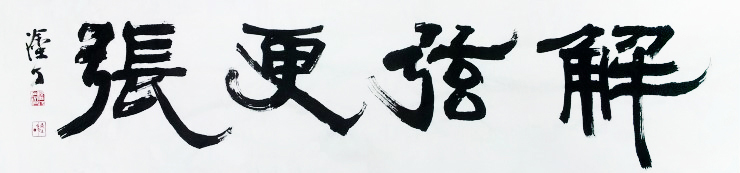 解弦更張